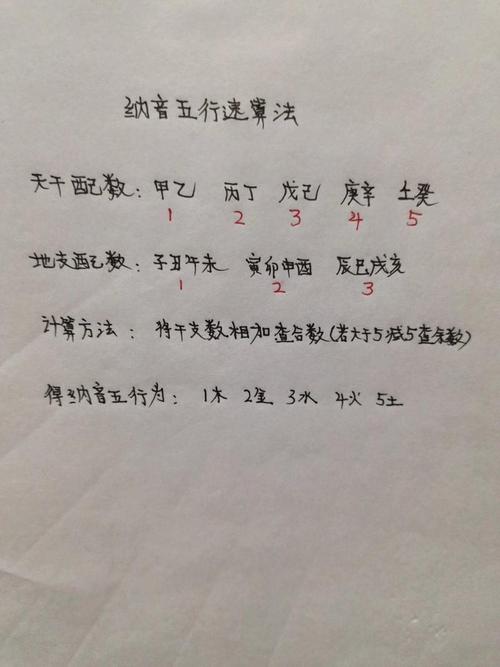 纳音五行速算法
天干配数：甲乙 丙丁 戊己 庚辛 壬癸
1 2 3 4 5
地支配数：子丑午未 寅卯申酉 辰巳戌亥
1 2 3
计算方法：将干支数相加查合数(若大于5减5查余数)
得纳音五行为：1木 2金 3水 4火 5土